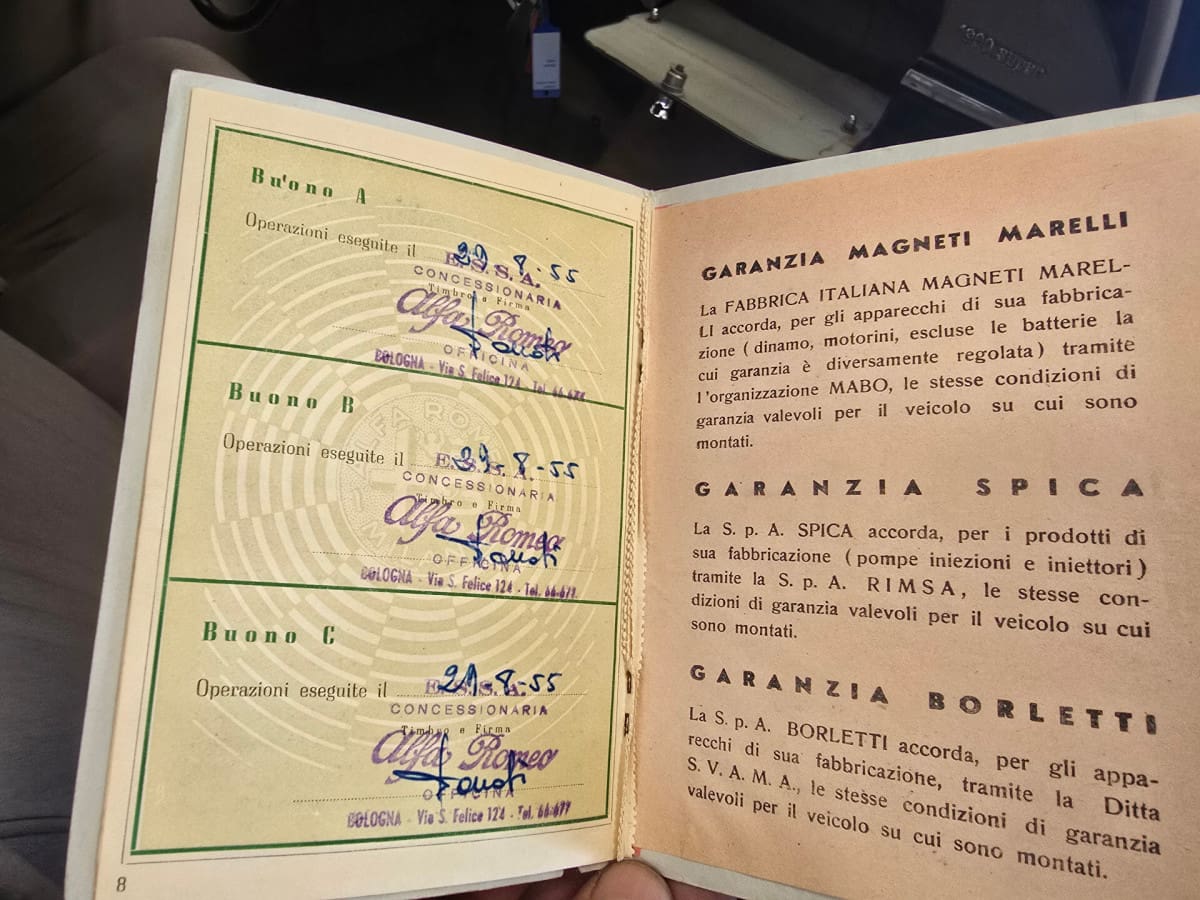 Buono A
Operazioni eseguite il 29-8-55
E.S.S.A.
CONCESSIONARIA
Timbro e Firma
Alfa Romeo
OFFICINA
BOLOGNA - Via S. Felice 124 - Tel. 66-677
Buono B
Operazioni eseguite il 29-8-55
E.S.S.A.
CONCESSIONARIA
Timbro e Firma
Alfa Romeo
OFFICINA
BOLOGNA - Via S. Felice 124 - Tel. 66-677
Buono C
Operazioni eseguite il 29-8-55
E.S.S.A.
CONCESSIONARIA
Timbro e Firma
Alfa Romeo
OFFICINA
BOLOGNA - Via S. Felice 124 - Tel. 66-677
8
GARANZIA MAGNETI MARELLI
La FABBRICA ITALIANA MAGNETI MAREL-
LI accorda, per gli apparecchi di sua fabbrica-
zione (dinamo, motorini, escluse le batterie la
cui garanzia è diversamente regolata) tramite
l'organizzazione MABO, le stesse condizioni di
garanzia valevoli per il veicolo su cui sono
montati.
GARANZIA SPICA
La S. p. A. SPICA accorda, per i prodotti di
sua fabbricazione (pompe iniezioni e iniettori)
tramite la S. p. A. RIMSA, le stesse con-
dizioni di garanzia valevoli per il veicolo su cui
sono montati.
GARANZIA BORLETTI
La S. p. A. BORLETTI accorda, per gli appa-
recchi di sua fabbricazione, tramite la Ditta
S. V. A. M. A., le stesse condizioni di garanzia
valevoli per il veicolo su cui sono montati.